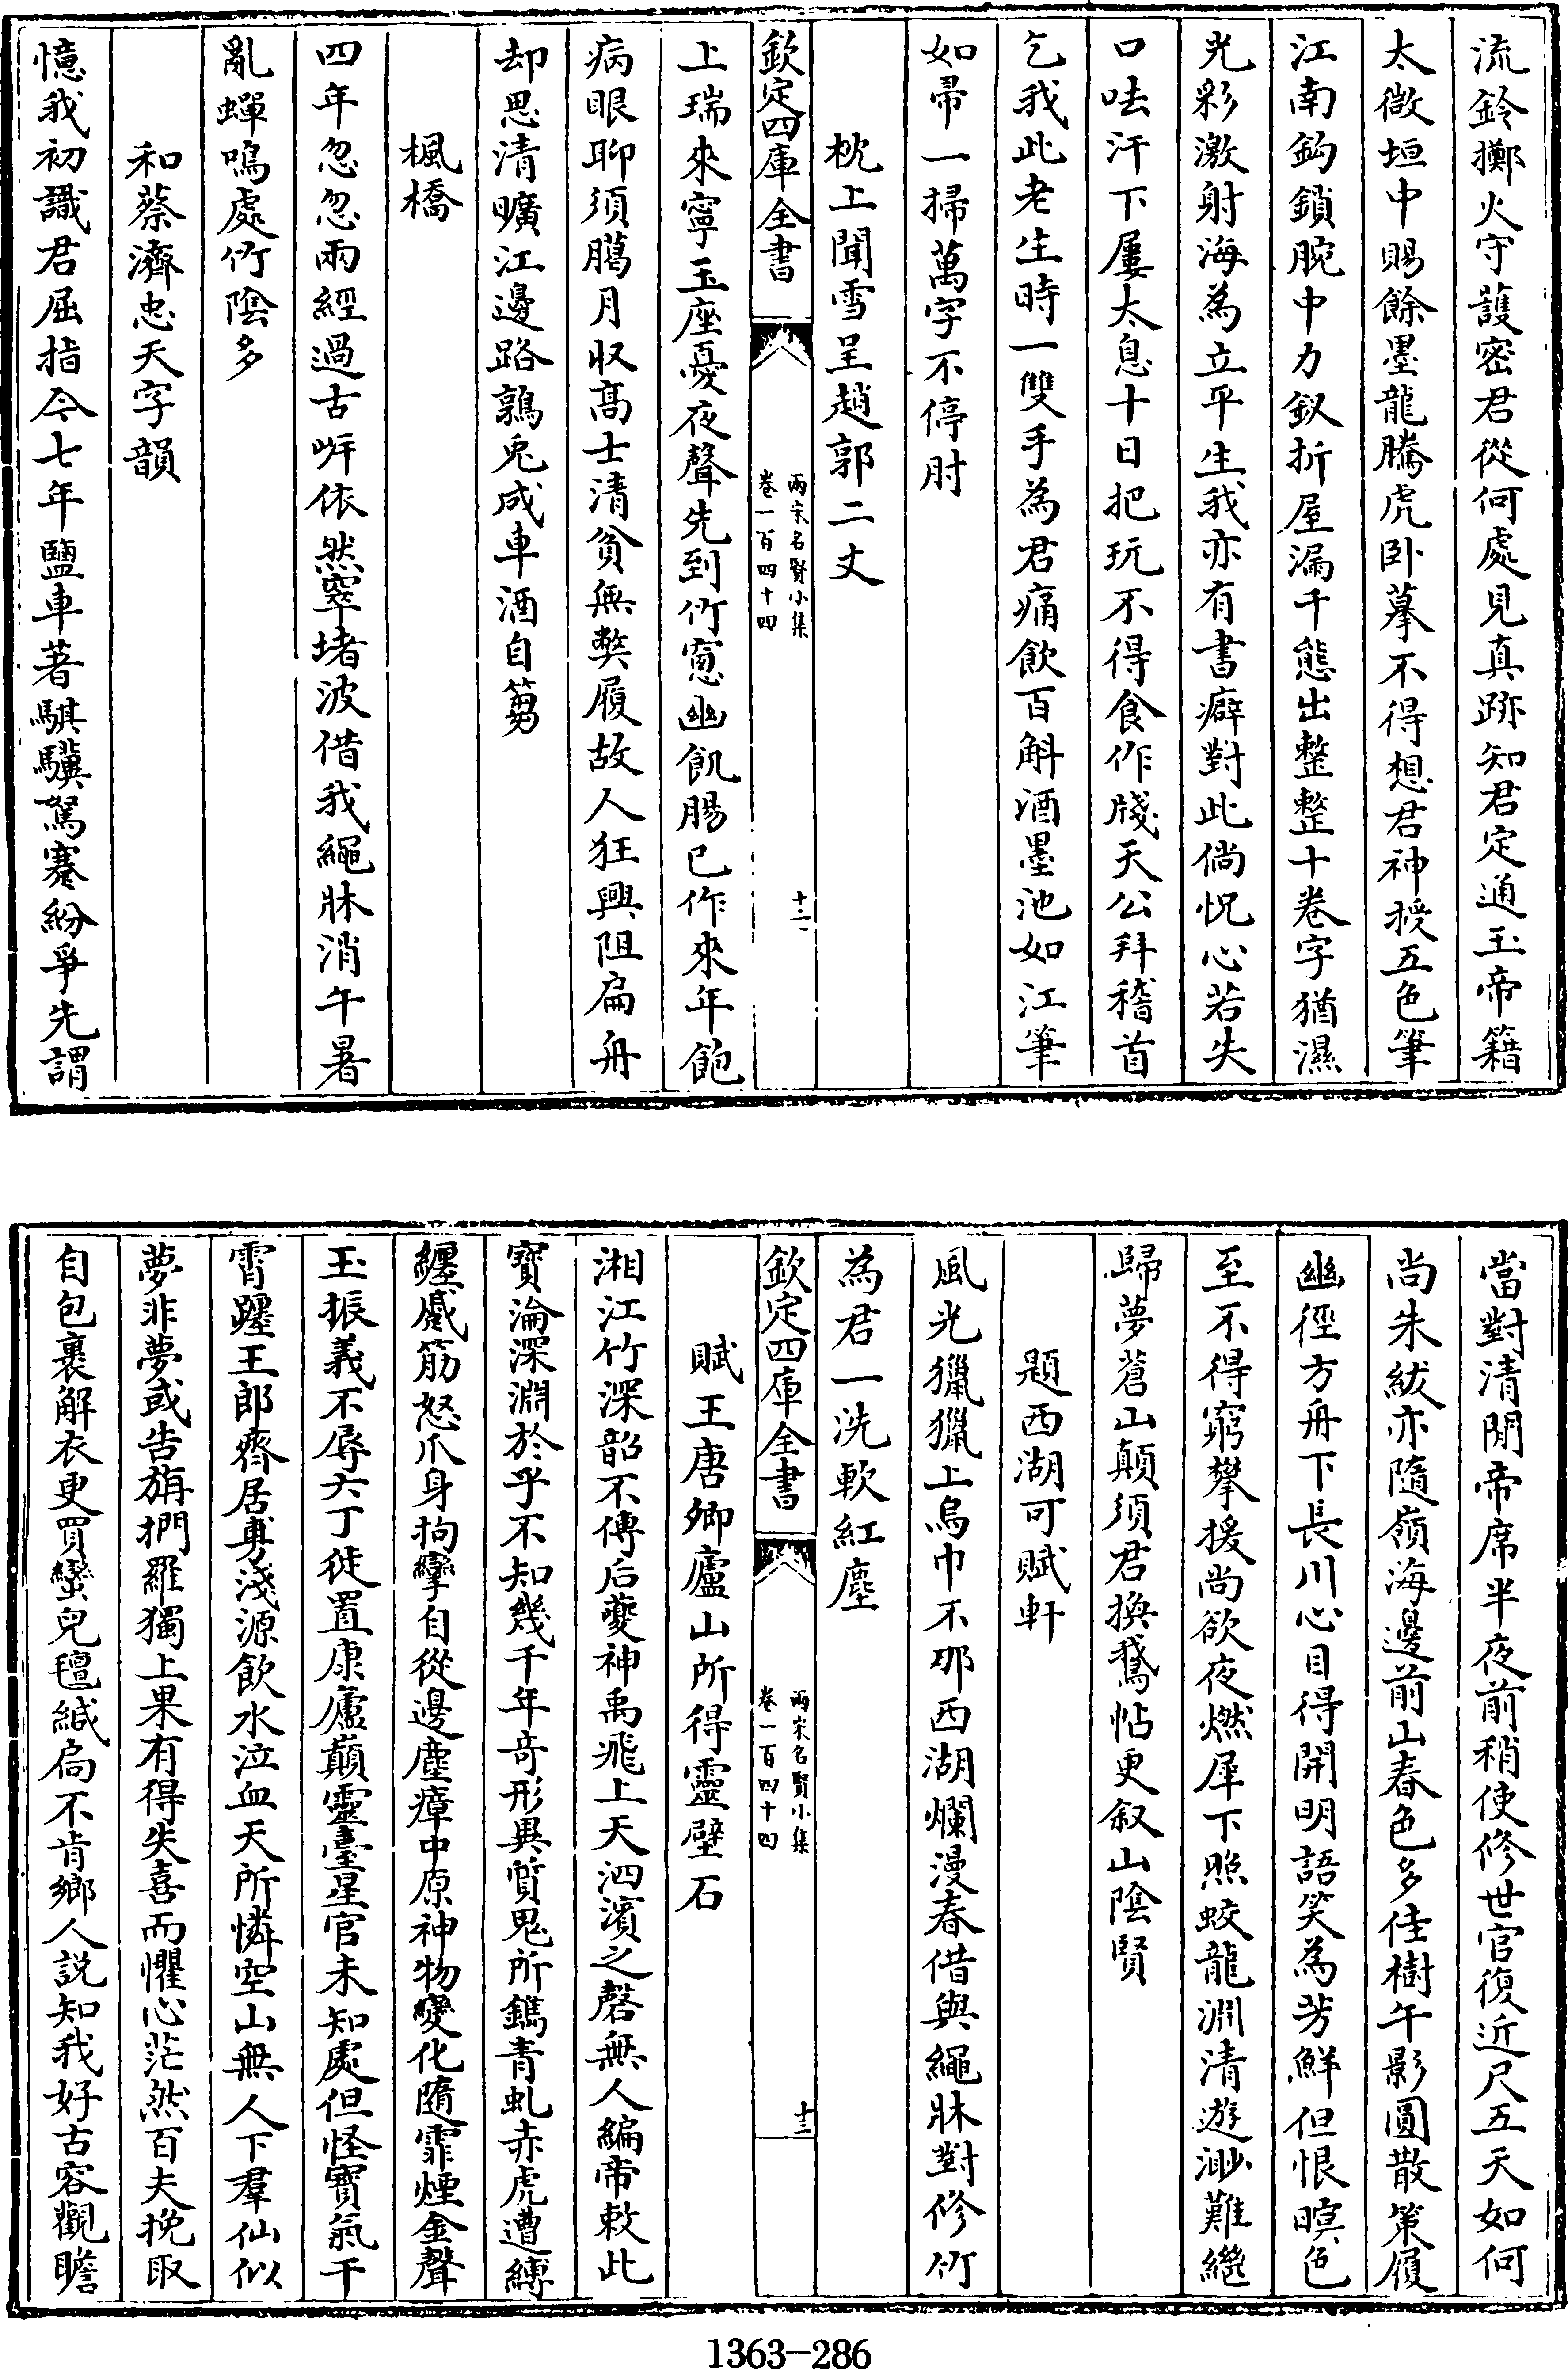 流鈴擲火守護密君從何處見真跡知君定通玉帝籍
太微垣中賜餘墨龍騰虎卧摹不得想君神授五色筆
江南鈎鎖腕中力釵折屋漏千態出整整十卷字猶濕
光彩激射海為立平生我亦有書癖對此倘怳心若失
口呿汗下屢太息十日把玩不得食作牋天公拜稽首
乞我此老生時一雙手為君痛飲百斛酒墨池如江筆
如帚一掃萬字不停肘
枕上聞雪呈趙郭二丈
欽定四庫全書
兩宋名賢小集
卷一百四十四
十二
上瑞來寧玉座憂夜聲先到竹窻幽飢腸已作來年飽
病眼聊須臈月收髙士清貧無獘履故人狂興阻扁舟
却思清曠江邊路鶉兎成車酒自篘
楓橋
四年忽忽兩經過古岍依然窣堵波借我繩牀消午暑
亂蟬鳴處竹陰多
和蔡濟忠天字韻
憶我初識君屈指今七年鹽車著騏驥駑蹇紛爭先謂
當對清閒帝席半夜前稍使修世官復近尺五天如何
尚朱紱亦隨嶺海邊前山春色多佳樹午影圓散策履
幽徑方舟下長川心目得開明語笑為芳鮮但恨暝色
至不得窮攀援尚欲夜燃犀下照蛟龍淵清遊渺難繼
歸夢蒼山顛須君換鵞帖更叙山陰賢
題西湖可賦軒
風光獵獵上烏巾不耶西湖爛漫春借與繩牀對修竹
為君一洗軟紅塵
欽定四庫全書
兩宋名賢小集
卷一百四十四
十三
賦王唐卿廬山所得靈壁石
湘江竹深韶不傳后夔神禹飛上天泗濱之磬無人編帝敕此
寶淪深淵於乎不知幾千年竒形異質鬼所鐫青虬赤虎遭縛
纒戚筋怒爪身拘攣自從邊塵瘴中原神物變化隨霏煙金聲
玉振義不辱六丁徙置康廬巔靈臺星官未知處但怪寳氣干
霄躔王郎齊居專淺源飲水泣血天所憐空山無人下羣仙似
夢非夢或告旃捫羅獨上果有得失喜而懼心茫然百夫挽取
自包裹解衣更買蠻兒氊緘扃不肯鄉人説知我好古容觀瞻
1363-286